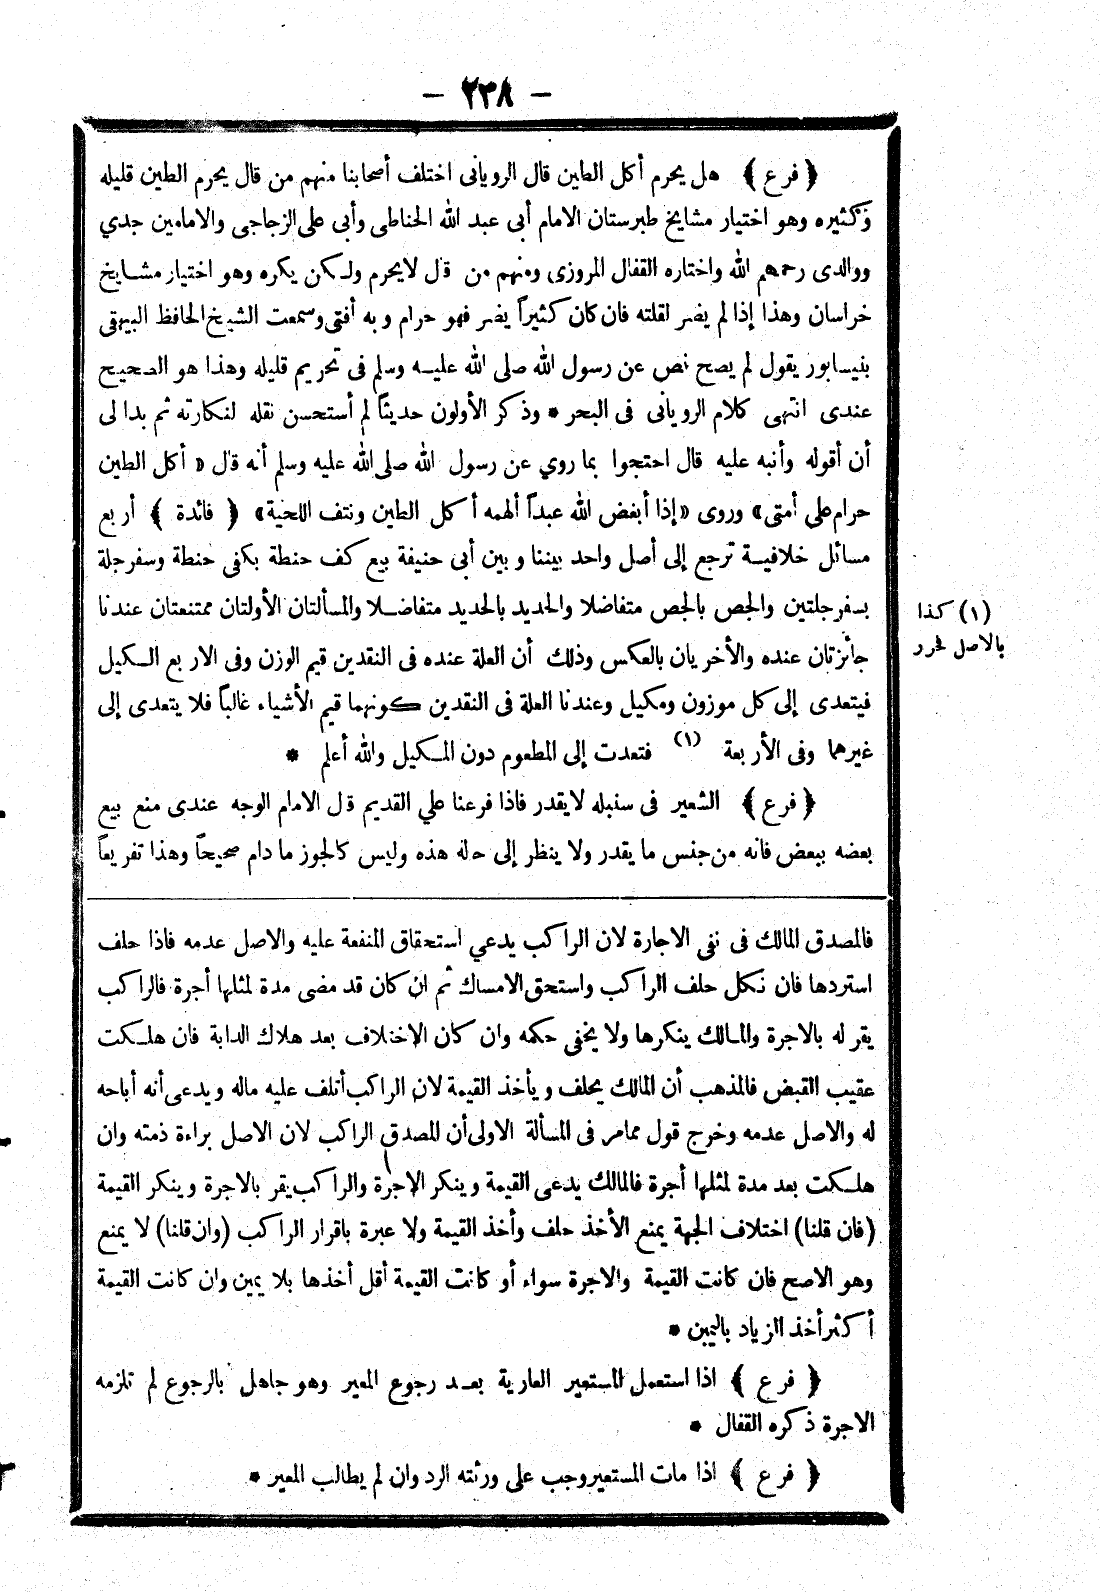 - ٢٣٨ -
﴿ فرع ﴾ هل يحرم أكل الطين قال الرويانى اختلف أصحابنا منهم من قال يحرم الطين قليله
وكثيره وهو اختيار مشايخ طبرستان الامام أبى عبد الله الحناطى وأبى على الزجاجى والامامين جدي
ووالدى رحمهم الله واختاره القفال المروزى ومنهم من قال لا يحرم ولكن يكره وهو اختيار مشايخ
خراسان وهذا إذا لم يضر لقلته فان كان كثيراً يضر فهو حرام وبه أفتى وسمعت الشيخ الحافظ البيهقى
بنيسابور يقول لم يصح نص عن رسول الله صلى الله عليه وسلم فى تحريم قليله وهذا هو الصحيح
عندى انتهى كلام الرويانى فى البحر * وذكر الأولون حديثاً لم أستحسن نقله لنكارته ثم بدا لى
أن أقوله وأنبه عليه قال احتجوا بما روي عن رسول الله صلى الله عليه وسلم أنه قال « أكل الطين
حرام على أمتى » وروى « إذا أبغض الله عبداً ألهمه أكل الطين ونتف اللحية » ﴿ فائدة ﴾ أربع
مسائل خلافية ترجع إلى أصل واحد بيننا وبين أبى حنيفة بيع كف حنطة بكفى حنطة وسفرجلة
بسفرجلتين والجص بالجص متفاضلا والحديد بالحديد متفاضلا والمسألتان الأولتان ممتنعتان عندنا
جائزتان عنده والأخريان بالعكس وذلك أن العلة عنده فى النقدين قيم الوزن وفى الاربع الكيل
فيتعدى إلى كل موزون ومكيل وعندنا العلة فى النقدين كونهما قيم الأشياء غالباً فلا يتعدى إلى
غيرهما وفى الأربعة (١) فتعدت إلى المطعوم دون المكيل والله أعلم *
(١) كذا
بالاصل فحرر
﴿ فرع ﴾ الشعير فى سنبله لا يقدر فاذا فرعنا علي القديم قال الامام الوجه عندى منع بيع
بعضه ببعض فانه من جنس ما يقدر ولا ينظر إلى حاله هذه وليس كالجوز ما دام صحيحاً وهذا تفريعاً
فالمصدق المالك فى نفى الاجارة لان الراكب يدعي استحقاق المنفعة عليه والاصل عدمه فاذا حلف
استردها فان نكل حلف الراكب واستحق الامساك ثم ان كان قد مضى مدة لمثلها أجرة فالراكب
يقر له بالاجرة والمالك ينكرها ولا يخفى حكمه وان كان الاختلاف بعد هلاك الدابة فان هلكت
عقيب القبض فالمذهب أن المالك يحلف ويأخذ القيمة لان الراكب أتلف عليه ماله ويدعى أنه أباحه
له والاصل عدمه وخرج قول مما مر فى المسألة الاولى أن المصدق الراكب لان الاصل براءة ذمته وان
هلكت بعد مدة لمثلها أجرة فالمالك يدعى القيمة وينكر الاجرة والراكب يقر بالاجرة وينكر القيمة
(فان قلنا) اختلاف الجهة يمنع الأخذ حلف وأخذ القيمة ولا عبرة باقرار الراكب (وان قلنا) لا يمنع
وهو الاصح فان كانت القيمة والاجرة سواء أو كانت القيمة أقل أخذها بلا يمين وان كانت القيمة
أكثر أخذ الزياد باليمين *
﴿ فرع ﴾ اذا استعمل المستعير العارية بعد رجوع المعير وهو جاهل بالرجوع لم تلزمه
الاجرة ذكره القفال *
﴿ فرع ﴾ اذا مات المستعير وجب على ورثته الرد وان لم يطالب المعير *